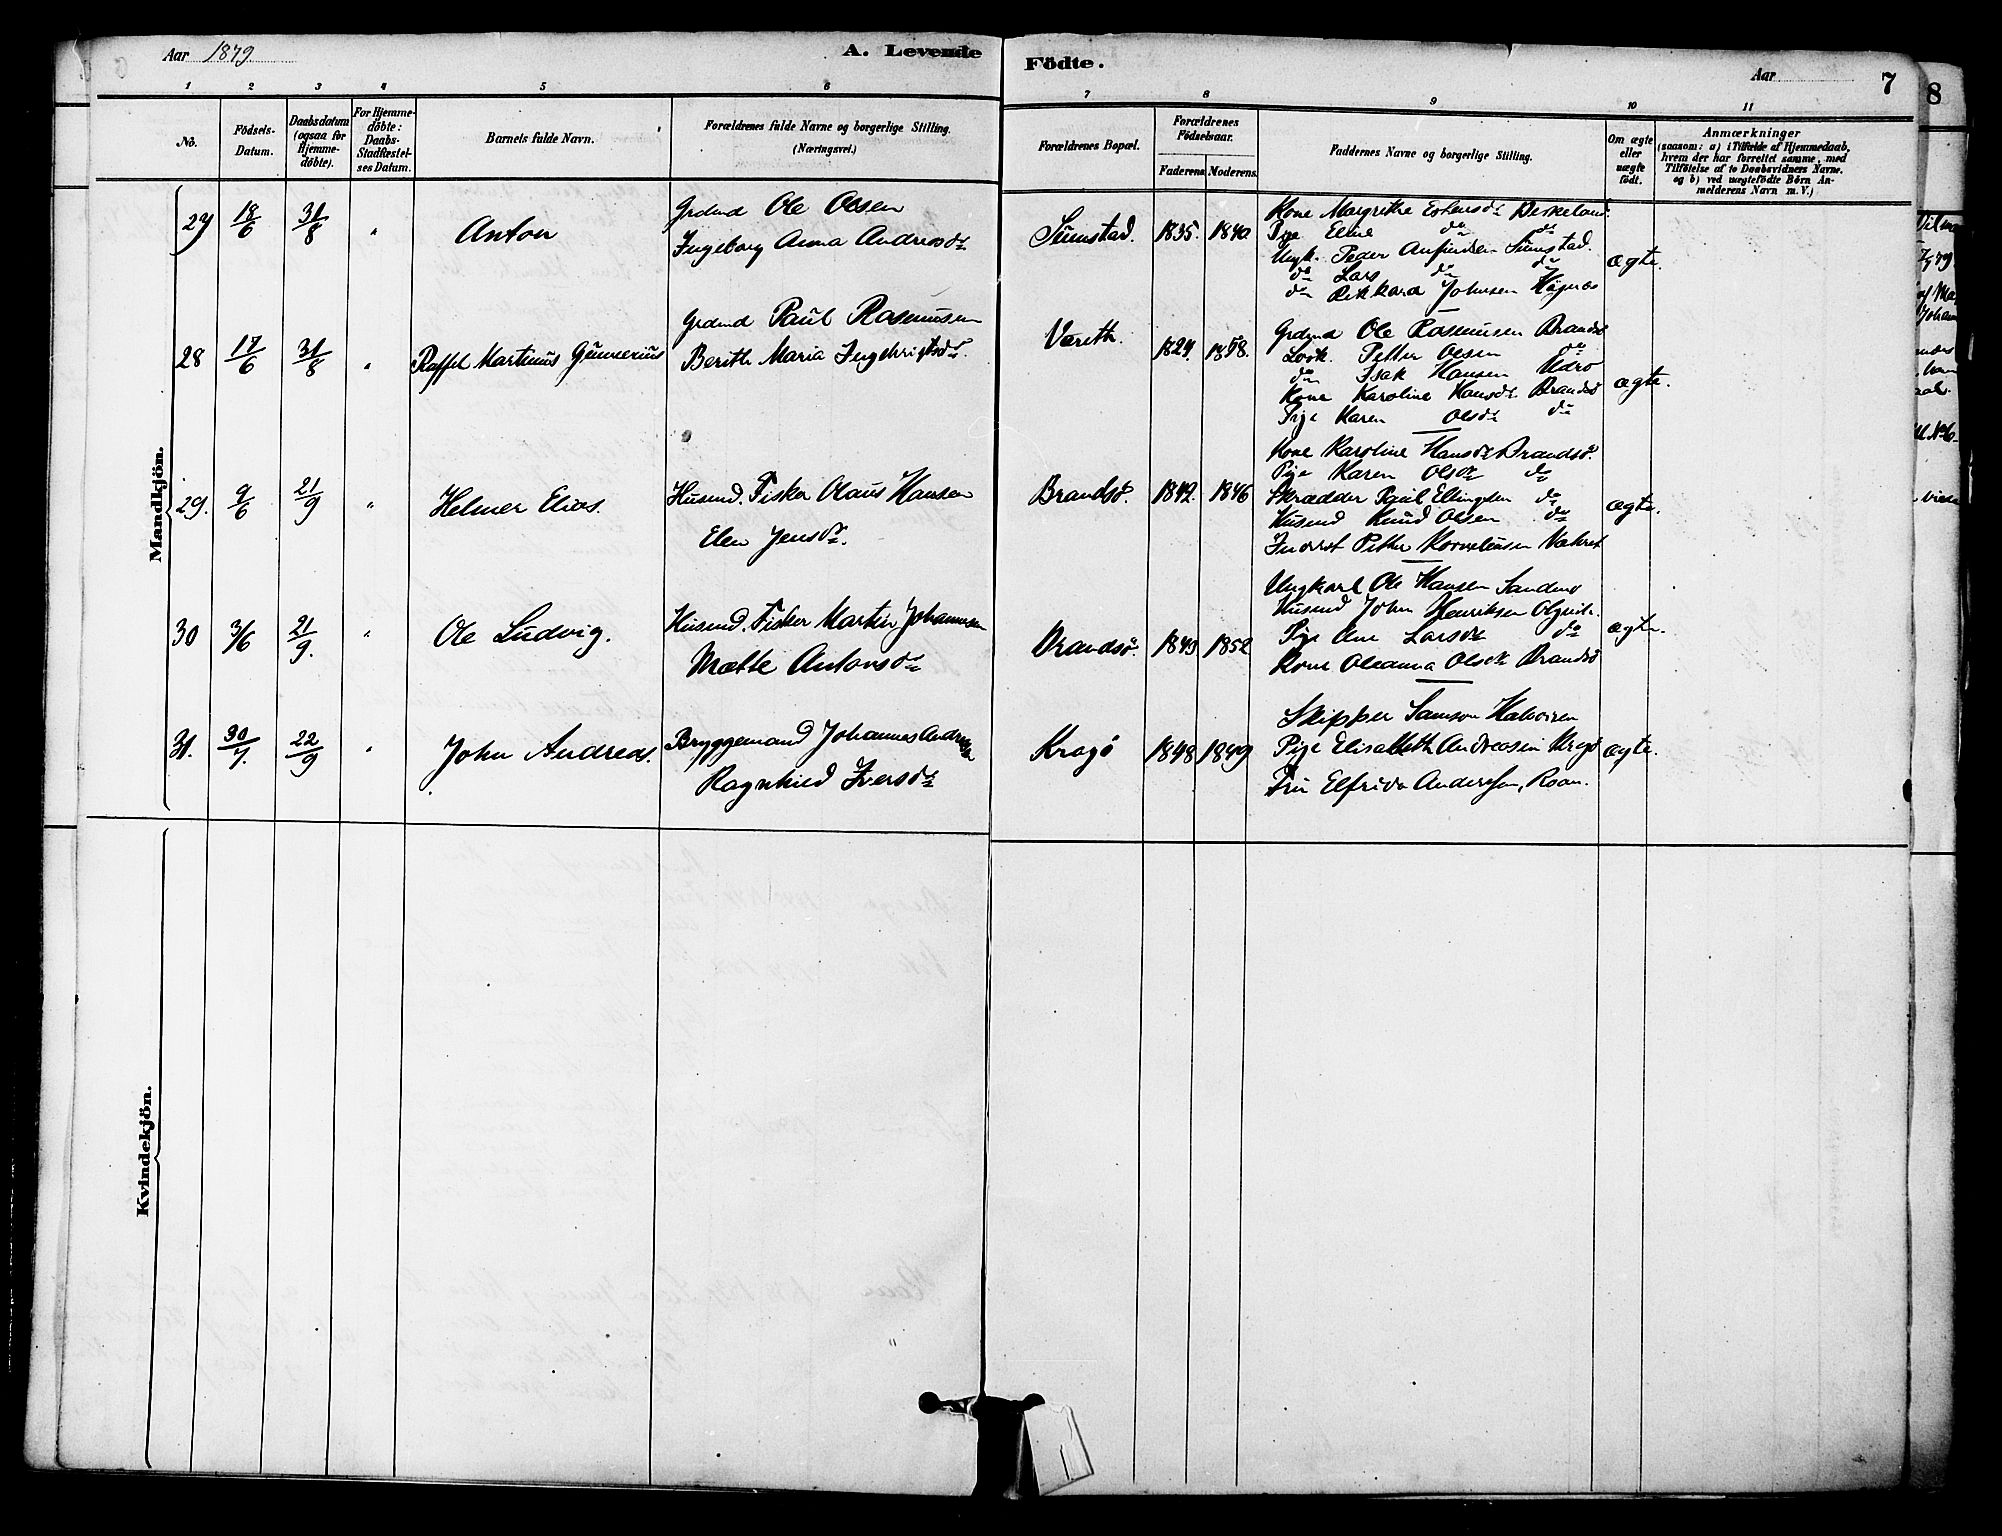 Aar 1879.
A. Levende Födte.
Aar
7
8
1 2 3 4 5 6 7 8 9 10 11
No.
Födsels-Datum.
Daabsdatum (ogsaa for Hjemmedöbte).
For Hjemmedöbte: Daabs-Stadfæstelses Datum.
Barnets fulde Navn.
Forældrenes fulde Navne og borgerlige Stilling.
(Næringsvei.)
Forældrenes Bopæl.
Forældrenes Födselsaar.
Faderens Moderens.
Faddernes Navne og borgerlige Stilling.
Om ægte eller uægte födt.
Anmærkninger
(saasom: a) i Tilfælde af Hjemmedaab, hvem der har forrettet samme, med Tilföielse af to Daabsvidners Navne. og b) ved uægtefödte Börn Anmelderens Navn m. V.)
Mandkjön.
29 18/6 31/8 " Anton
Grdmd Ole Olsen
Ingeborg Anna Andreasdr
Sumstad. 1835. 1840
Kone Margrethe Estensdr Beskeland
Pige Eline do do
Ungk. Peder Anfinsen Sumstad.
do Lars do do
do Rikkard Johnsen Hognæs
ægte.
28 17/6 31/8 " Raffel Martinus Gunnerius
Grdmd Paul Rasmusen
Berith Maria Ingebrigtsdr
Vareth. 1824. 1858.
Grdmd Ole Rasmusen Brandsö
Petter Olsen do
do Isak Hansen Udrö
Kone Karoline Hansdr Brandsö
Pige Karen Olsdr do
ægte.
29. 9/6 21/9 " Helmer Elias.
Husmd. Fisker Olaus Hansen
Elen Jensdr.
Brandsö. 1842. 1846
Kone Karoline Hansdr Brandsö.
Pige Karen Olsdr do
Skrædder Paul Ellingsen do
Husmd Knud Olsen do
Inderst Petter Korneliusen
ægte.
30 3/6 21/9. " Ole Ludvig.
Husmd. Fisker Martin Johannesen
Mætte Antonsdr
Brandsö. 1843 1852
Ungkarl Ole Hansen
Husmd John Henriksen
Pige Ane Larsdr do
Kone Oleanna Olsdr Brandsö
ægte.
31. 30/7. 22/9 " John Andreas.
Bryggemand Johannes Andresen
Ragnhild Iversdr
Kragö 1848 1849
Skipper Samson Halvorsen
Pige Elisabeth Andreasen Kragö
Fru Elfrida Anderssen, Roan.
ægte.
Kvindekjön.